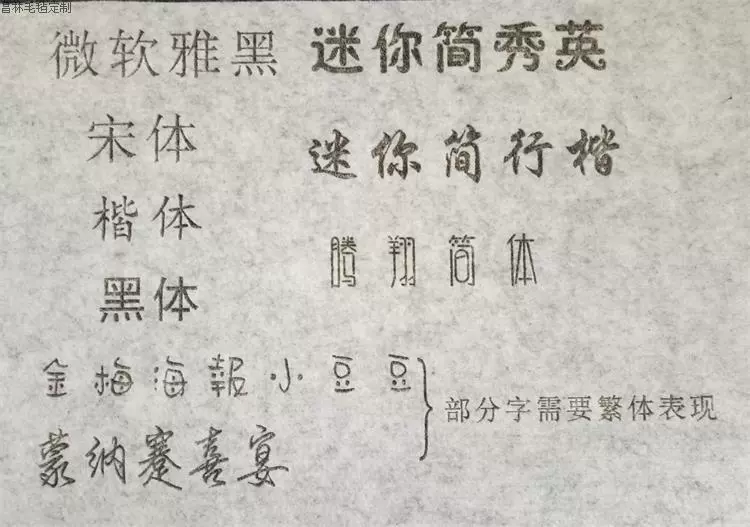 昌林毛毡定制
微软雅黑
迷你简秀英
宋体
迷你简行楷
楷体
腾翔简体
黑体
金梅海報小豆豆
部分字需要繁体表现
蒙纳蹇喜宴